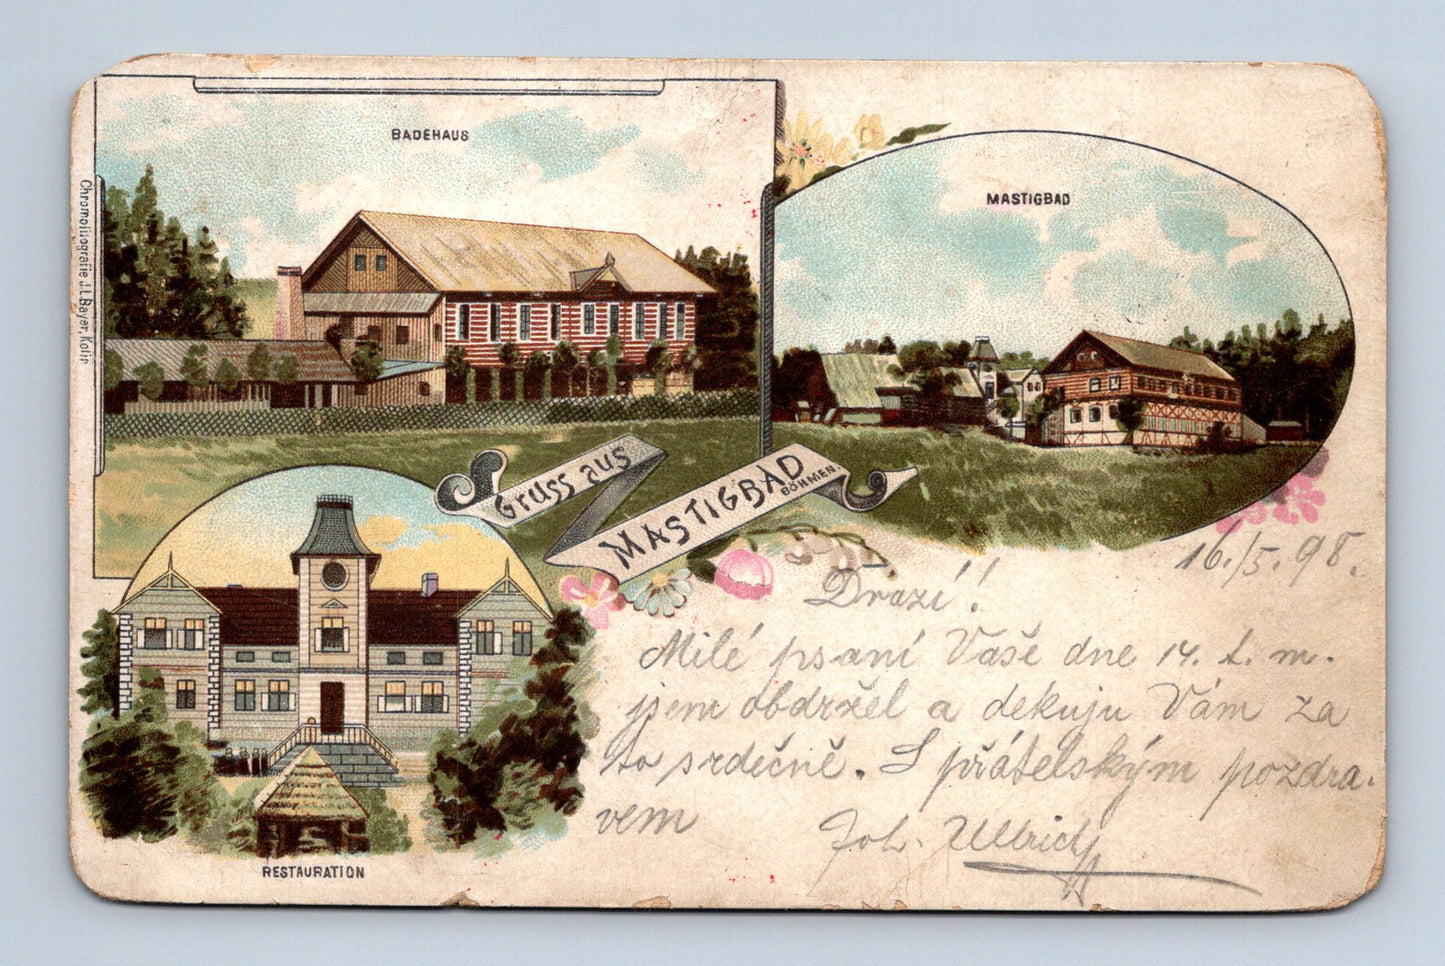 BADEHAUS
MASTIGBAD
Chromolitografie J.L.Bayer, Kolin
Gruss aus
MASTIGBAD
BÖHMEN.
RESTAURATION
16./5. 98.
Drazí!
Milé psaní Vaše dne 14. t. m.
jsem obdržel a dekuju Vám za
to srdečně. S přátelským pozdra-
vem
Joh. Ullrich